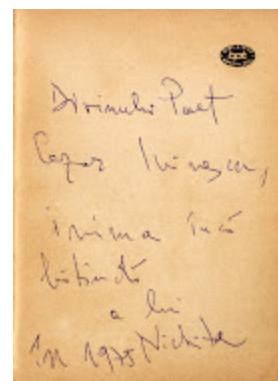 Divinului Poet
Cezar Ivănescu,
inima încă
bătândă
a lui
În 1975 Nichita